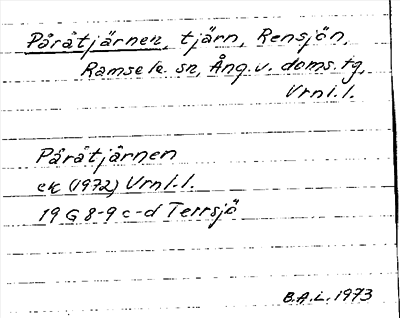 Påråtjärnen, tjärn, Rensjön,
Ramsele sn, Ång. v. doms. tg,
Vrnl.l.
Påråtjärnen
ek (1972) Vrnl.l.
19 G 8-9 c-d Terrsjö
B.A.L. 1973